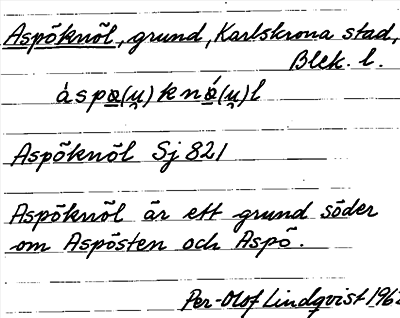 Aspöknöl, grund, Karlskrona stad,
Blek. l.
áspα̱(u̯)knά̱(u̯)l
Aspöknöl Sj 821
Aspöknöl är ett grund söder
om Aspösten och Aspö.
Per-Olof Lindqvist